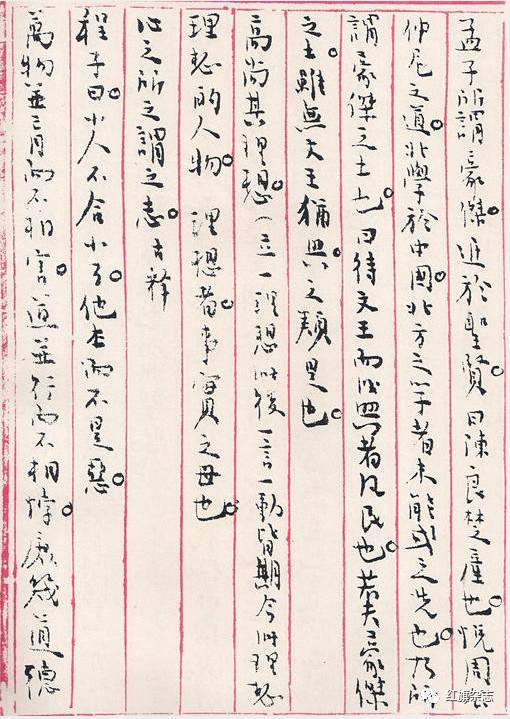 孟子所謂豪傑。近於聖賢。曰陳良楚產也。悅周公
仲尼之道。北學於中國。北方之學者未能或之先也。所
謂豪傑之士也。曰待文王而後興者凡民也。若夫豪傑
之士。雖無文王猶興。之類是也。
高尚其理想。(立一理想此後一言一動皆期合此理想
理想的人物。 理想者。事實之母也。
心之所之謂之志。古釋
程子曰。小人不合小了。他本而不是惡。
萬物並育而不相害。道並行而不相悖。庶幾道德
红旗杂志